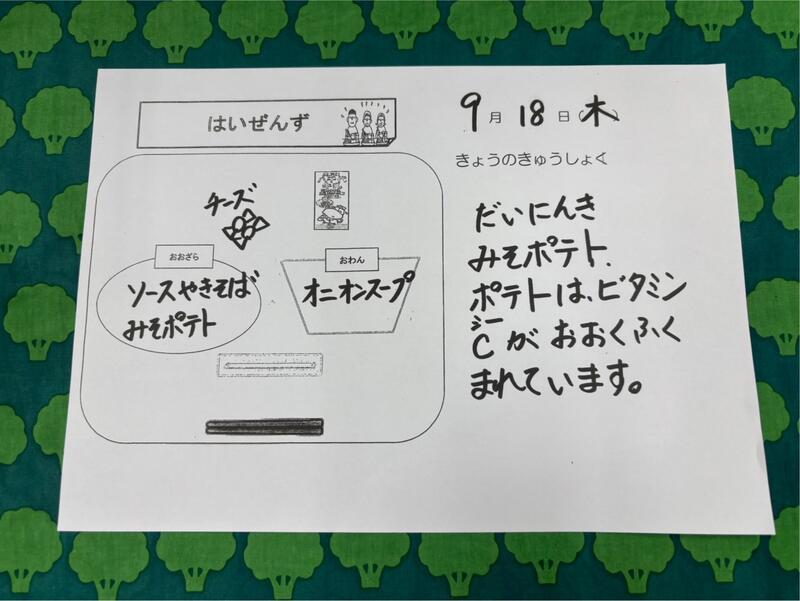 はいぜんず
9月18日(木)
きょうのきゅうしょく
チーズ
おおざら
おわん
ソースやきそば
みそポテト
オニオンスープ
だいにんき
みそポテト、
ポテトは、ビタミン
シー
Cがおおくふく
まれています。